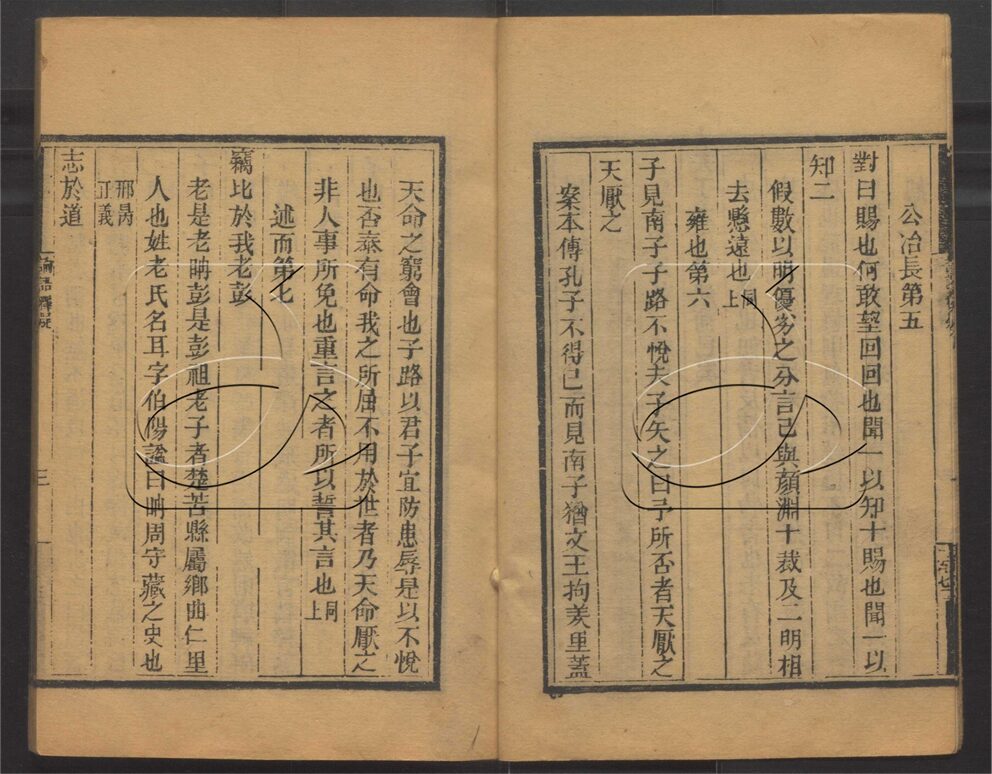 公冶長第五
對曰賜也何敢望回回也聞一以知十賜也聞一以
知二
假數以明優劣之分言己與顏淵十裁及二明相
去懸遠也同上
雍也第六
子見南子子路不悅夫子矢之曰予所否者天厭之
天厭之
案本傳孔子不得已而見南子猶文王拘羑里蓋
天命之窮會也子路以君子宜防患辱是以不悅
也否泰有命我之所屈不用於世者乃天命厭之
非人事所免也重言之者所以誓其言也同上
述而第七
竊比於我老彭
老是老聃彭是彭祖老子者楚苦縣厲鄉曲仁里
人也姓老氏名耳字伯陽諡曰聃周守藏之史也
邢昺正義
志於道
三